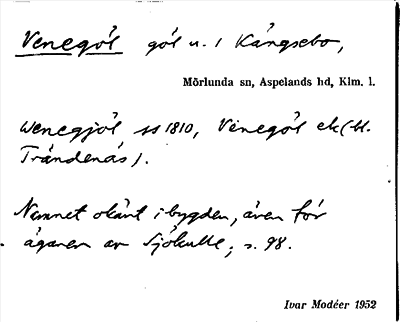 Venegöl göl u. 1 Kångsebo,
Mörlunda sn, Aspelands hd, Klm. l.
Wenegjöl ss 1810, Venegöl ek (bl.
Trändenäs).
Namnet okänt i bygden, även för
ägaren av Sjökulle, s. 98.
Ivar Modéer 1952